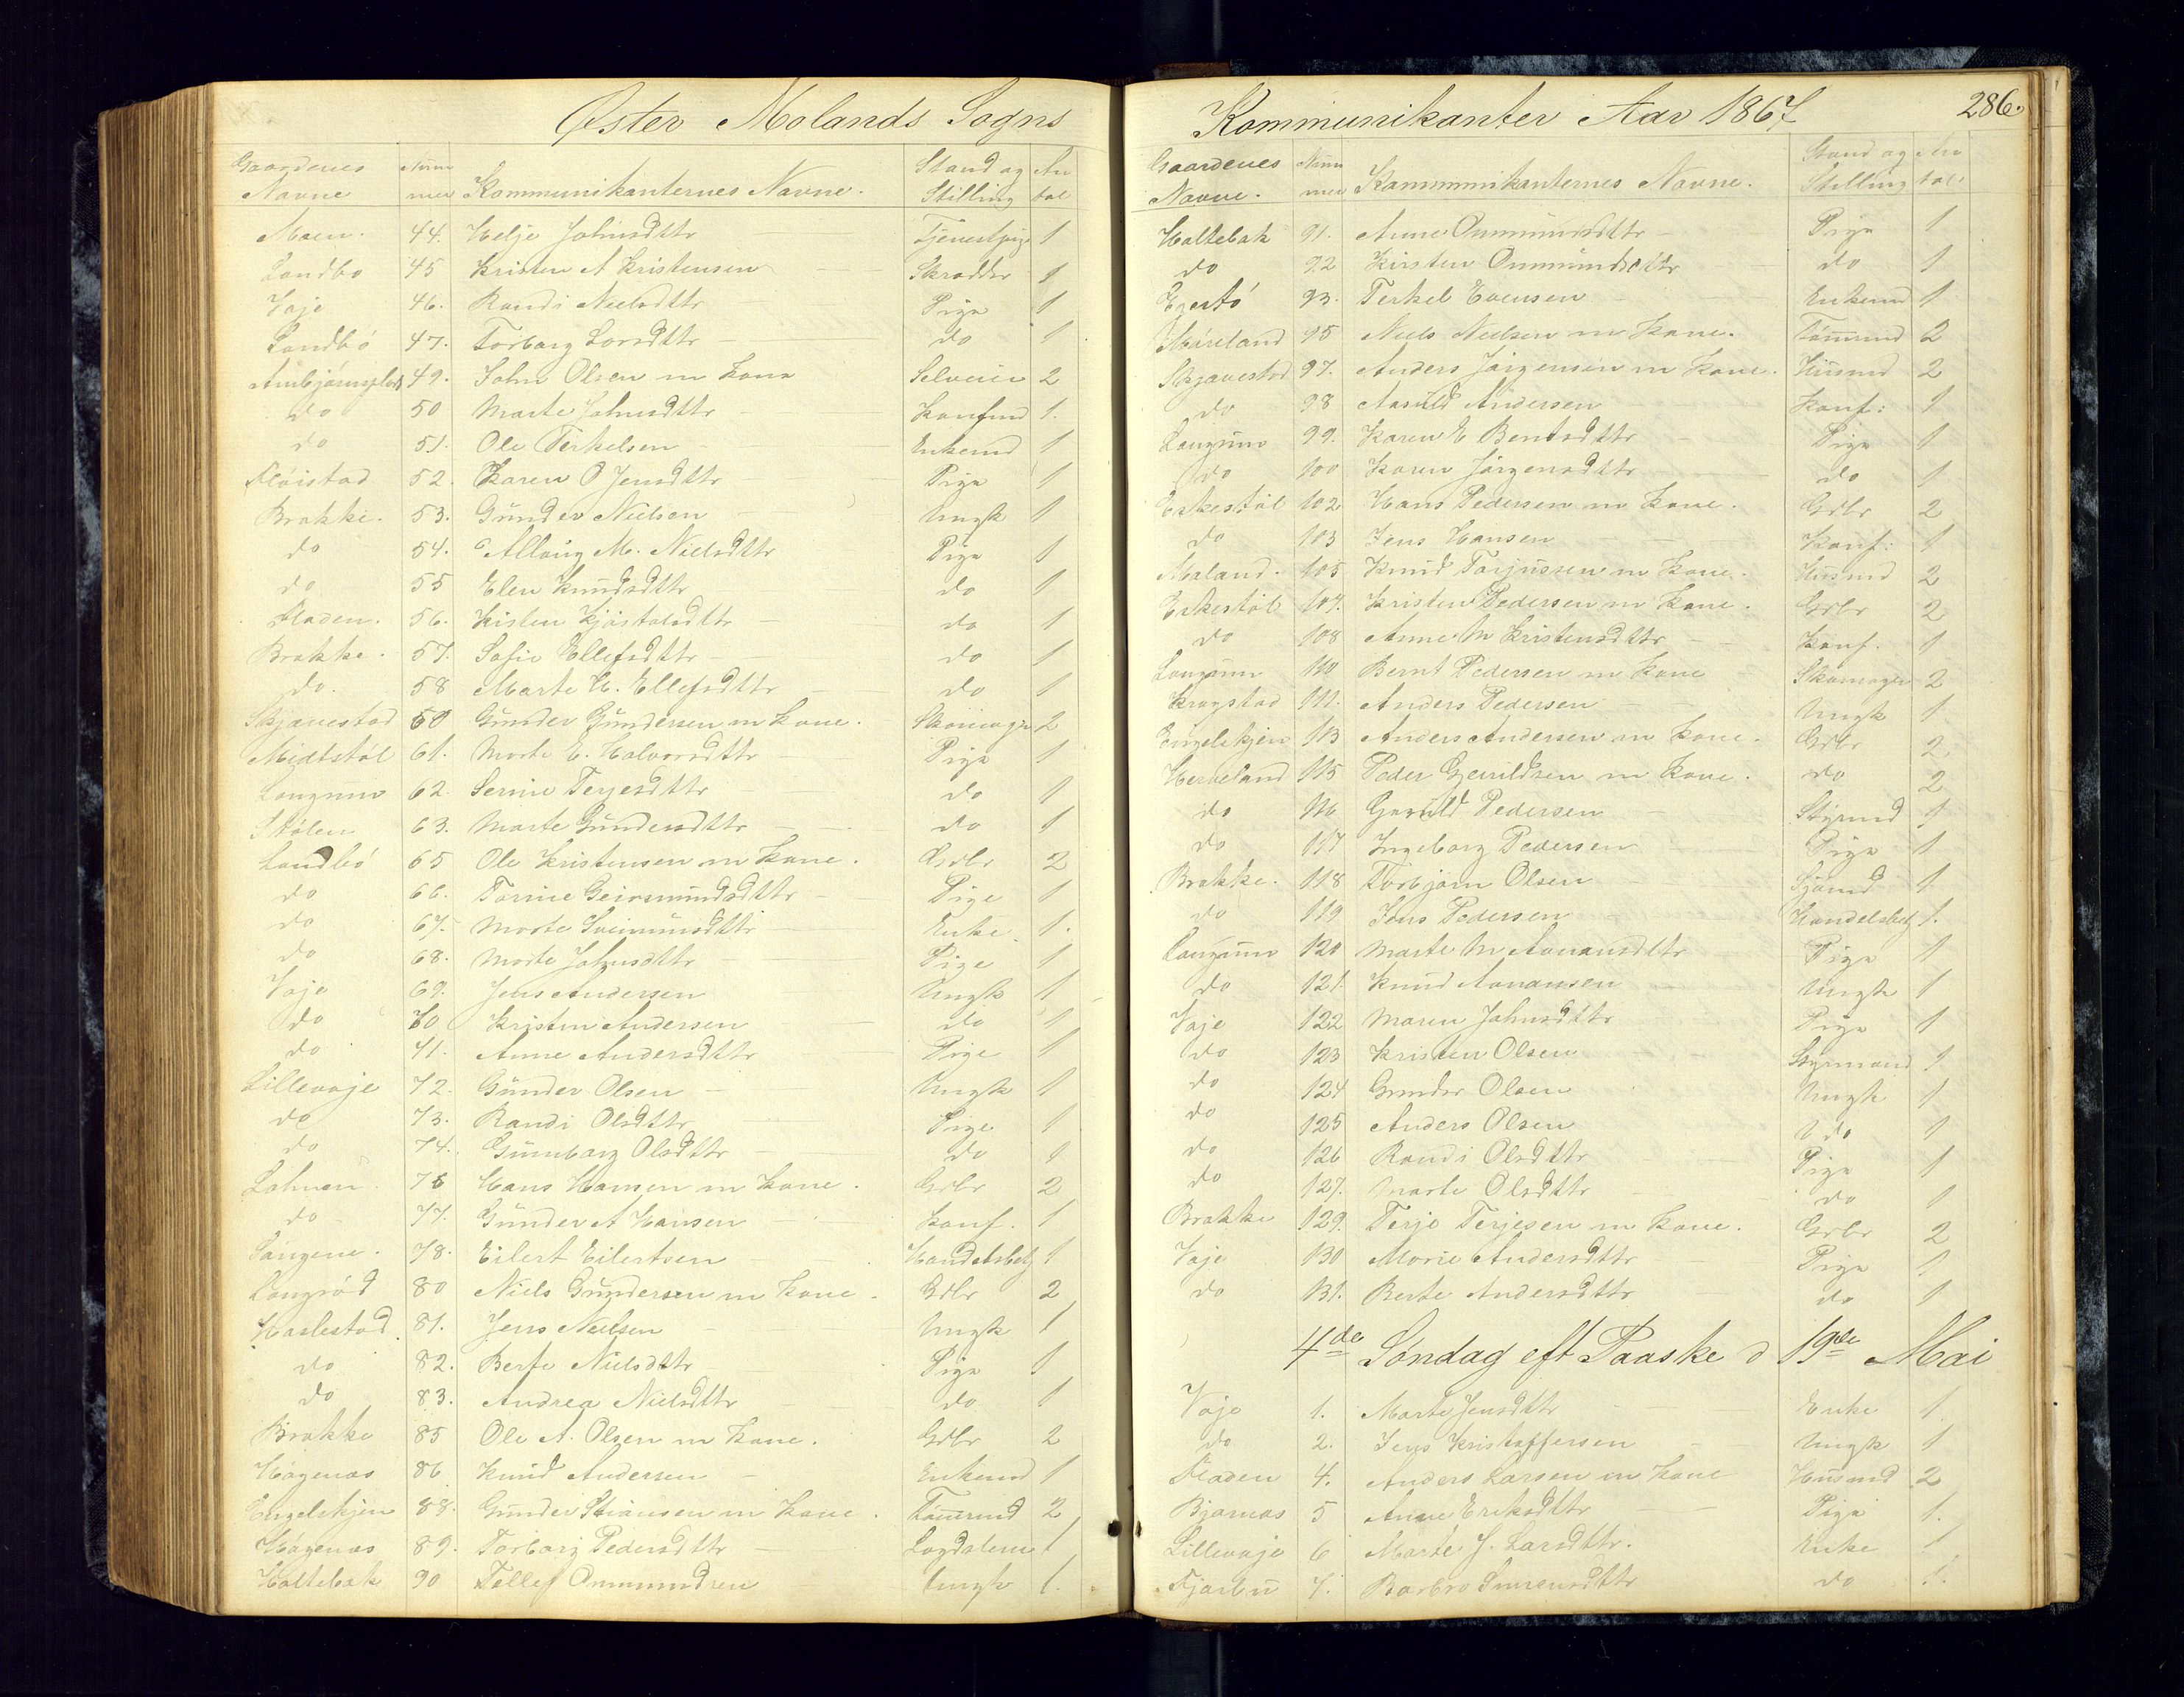 Øster Molands Sogns
Gaardenes Navne | Num mer | Kommunikanternes Navne. | Stand og Stilling | An tal
Moen. 44. Helje Johnsdttr Tjenestpige 1
Landbø 45 Kristen A Kristensen Skrædder 1
Vaje 46. Randi Nielsdttr Pige 1
Landbø 47. Torborg Larsdttr do 1
Ambjørnsplads 49. John Olsen m Kone Selveier 2
do 50 Marte Johnsdttr Konfmd 1.
do 51. Ole Terkelsen Enkemd 1
Fløistad 52. Karen O Jensdttr Pige 1
Brække. 53. Gunder Nielsen Ungk 1
do 54. Alloug M. Nielsdttr Pige 1
do 55 Elen Knudsdttr do 1
Fladen. 56. Kisten Kjøstolsdttr do 1
Brække. 57. Sofie Ellefsdttr do 1
do. 58 Marte H. Ellefsdttr do 1
Skjævestad 60 Gunder Gundersen m Kone. Skomager 2
Midtstøl 61. Marte E. Halvorsdttr Pige 1
Langum 62. Serine Terjesdttr do 1
Stølen 63. Marte Gundersdttr do 1
Landbø 65 Ole Kristensen m Kone. Grbr 2
do 66. Torine Geirmundsdttr Pige 1
do 67. Marte Sveinunsdttr Enke 1.
do 68. Marte Johnsdttr Pige 1
Vaje 69. Jens Andersen Ungk 1
do 70 Kristen Andersen do 1
do 71. Anne Andersdttr Pige 1
Lillevaje 72. Gunder Olsen Ungk 1
do 73. Randi Olsdttr Pige 1
do 74. Gunborg Olsdttr do 1
Lahnen 76 Hans Hansen m Kone. Grbr 2
do 77. Gunder A Hansen Konf. 1
Längene. 78. Eilert Eilertsen Handelsbetj 1
Langrød 80 Niels Gundersen m Kone. Grbr 2
Haslestad 81. Jens Nielsen Ungk 1
do 82. Berte Nielsdttr Pige 1
do 83. Andrea Nielsdttr do 1
Brække 85 Ole A. Olsen m Kone. Grbr 2
Høgenæs 86 Knud Andersen Enkemd 1
Engelskjøn 88. Gunder Stiansen m Kone. Tømmrmd 2
Høgenæs 89. Torborg Pedersdttr Lægdslem 1
Holtebæk 90 Tellef Ommundsen Ungk 1.
Kommunikanter Aar 1867. 286.
Gaardenes Navne. | Num mer | Kommunikanternes Navne. | Stand og Stilling | An tal
Holtebæk 91. Anne Ommundsdttr Pige 1
do 92 Kirsten Ommundsdttr do 1
93. Terkel Evensen Enkemd 1
Møreland 95 Niels Nielsen m Kone. Tømmrmd 2
Skjævestad 97. Anders Jørgensen m Kone. Husmd 2
do 98 Asuld Andersen Konf: 1
Langum 99. Karen E Bentsdttr Pige 1
do 100 Karen Jørgensdttr do 1
Eskestøl 102 Hans Pedersen m Kone. Grbr 2
do 103 Jens Hansen Konf: 1
Moland. 105 Knud Torjussen m Kone. Husmd 2
Eskestøl 107. Kristen Pedersen m Kone. Grbr 2
do 108 Anne M Kristensdttr Konf. 1
Langum 110 Bernt Pedersen m Kone Skomager 2
Krogstad 111. Anders Pedersen Ungk 1
Engelskjøn 113 Anders Andersen m Kone. Grbr 2
Herveland 115 Peder Gjeruldsen m Kone. do 2
do 116 Gjeruld Pedersen Styrmd 1
do 117 Ingeborg Pedersen Pige 1
Brække. 118 Torbjørn Olsen Sjømd 1
do 119 Jens Pedersen Handelsbetj 1.
Langum 120 Marte M Aanansdttr Pige 1
do 121. Knud Aanansen Ungk 1
Vaje 122 Maren Johnsdttr Pige 1
do 123 Kristen Olsen Styrmand 1
do 124 Gunder Olsen Ungk 1
do 125 Anders Olsen do 1
do 126 Randi Olsdttr Pige 1
do 127. Marte Olsdttr do 1
Brække 129. Terje Terjesen m Kone. Grbr 2
Vaje 130 Marie Andersdttr Pige 1
do 131. Berte Andersdttr do 1
4de Søndag eft Paaske d 19de Mai
Vaje 1. Marte Jensdttr Enke 1
do 2. Jens Kristoffersen Ungk 1
Fladen 4. Anders Larsen m Kone Husmd 2
Bjørnæs 5 Anne Eriksdttr Pige 1.
Lillevaje 6 Marte J. Larsdttr. Enke 1
Fjærbu 7. Barbro Simensdttr do 1.